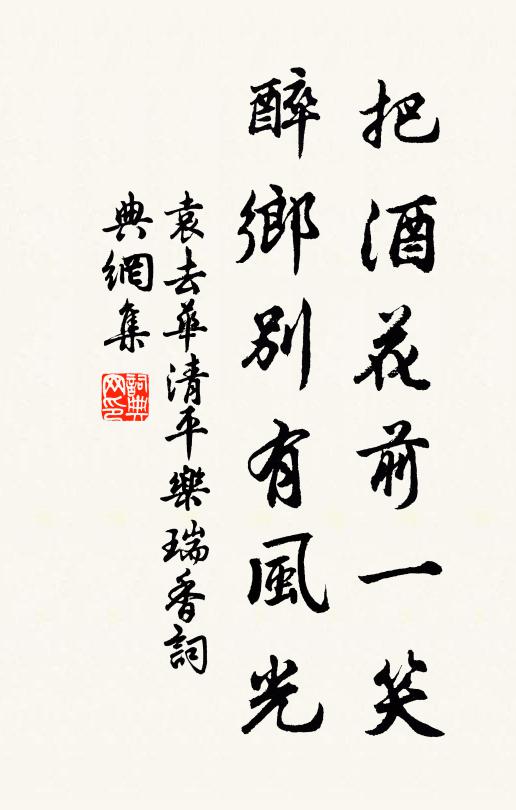 把酒花前一笑
醉鄉別有風光
袁去華清平樂瑞香詞
典網集
詞典网印